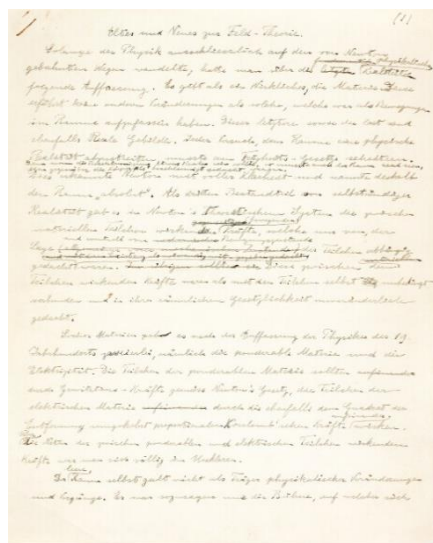 (1)
Altes und Neues zur Feld-Theorie.
Solange die Physik ausschliesslich auf den von Newton
gebahnten Wegen wandelte, hatte man über die physikalische Realität
folgende Auffassung. Es gibt als ein Wirkliches, die Materie. Diese
erfährt keine anderen Änderungen als solche, welche wir als Bewegungen
im Raume aufzufassen haben. Dieser letztere
ebenfalls Reale Gebilde. Jeder Versuch, dem Raume seine physische
Realität abzustreiten, musste am Trägheits-Gesetz scheitern.
Dies erkannte Newton mit voller Klarheit und nannte deshalb
den Raum „absolut". Als dritten Bestandteil von selbständiger
Realität gab es in Newton's System die zwischen
materiellen Teilchen wirkenden Kräfte, welche nur von deren
Lage Teilchen abhängig
gedacht waren. Diese zwischen den
Teilchen wirkenden Kräfte waren als mit den Teilchen selbst unbedingt
verbunden und in ihrer räumlichen Gesetzlichkeit unveränderlich
gedacht.
Materien gab es nach der Auffassung der Physiker des 19.
Jahrhunderts zweierlei, nämlich die ponderable Materie und die
Elektrizität. Die Teilchen der ponderablen Materie sollten aufeinander
durch Gravitations-Kräfte gemäss Newton's Gesetz, die Teilchen der
elektrischen Materie durch die ebenfalls dem Quadrat der
Entfernung umgekehrt proportionalen Coulomb'schen Kräfte aufeinander wirken.
der zwischen ponderablen und elektrischen Teilchen wirkenden
Kräfte war man sich völlig im Unklaren.
Der leere Raum selbst galt nicht als Träger physikalischer Veränderungen
und Vorgänge. Er war sozusagen nur die Bühne, auf welcher sich